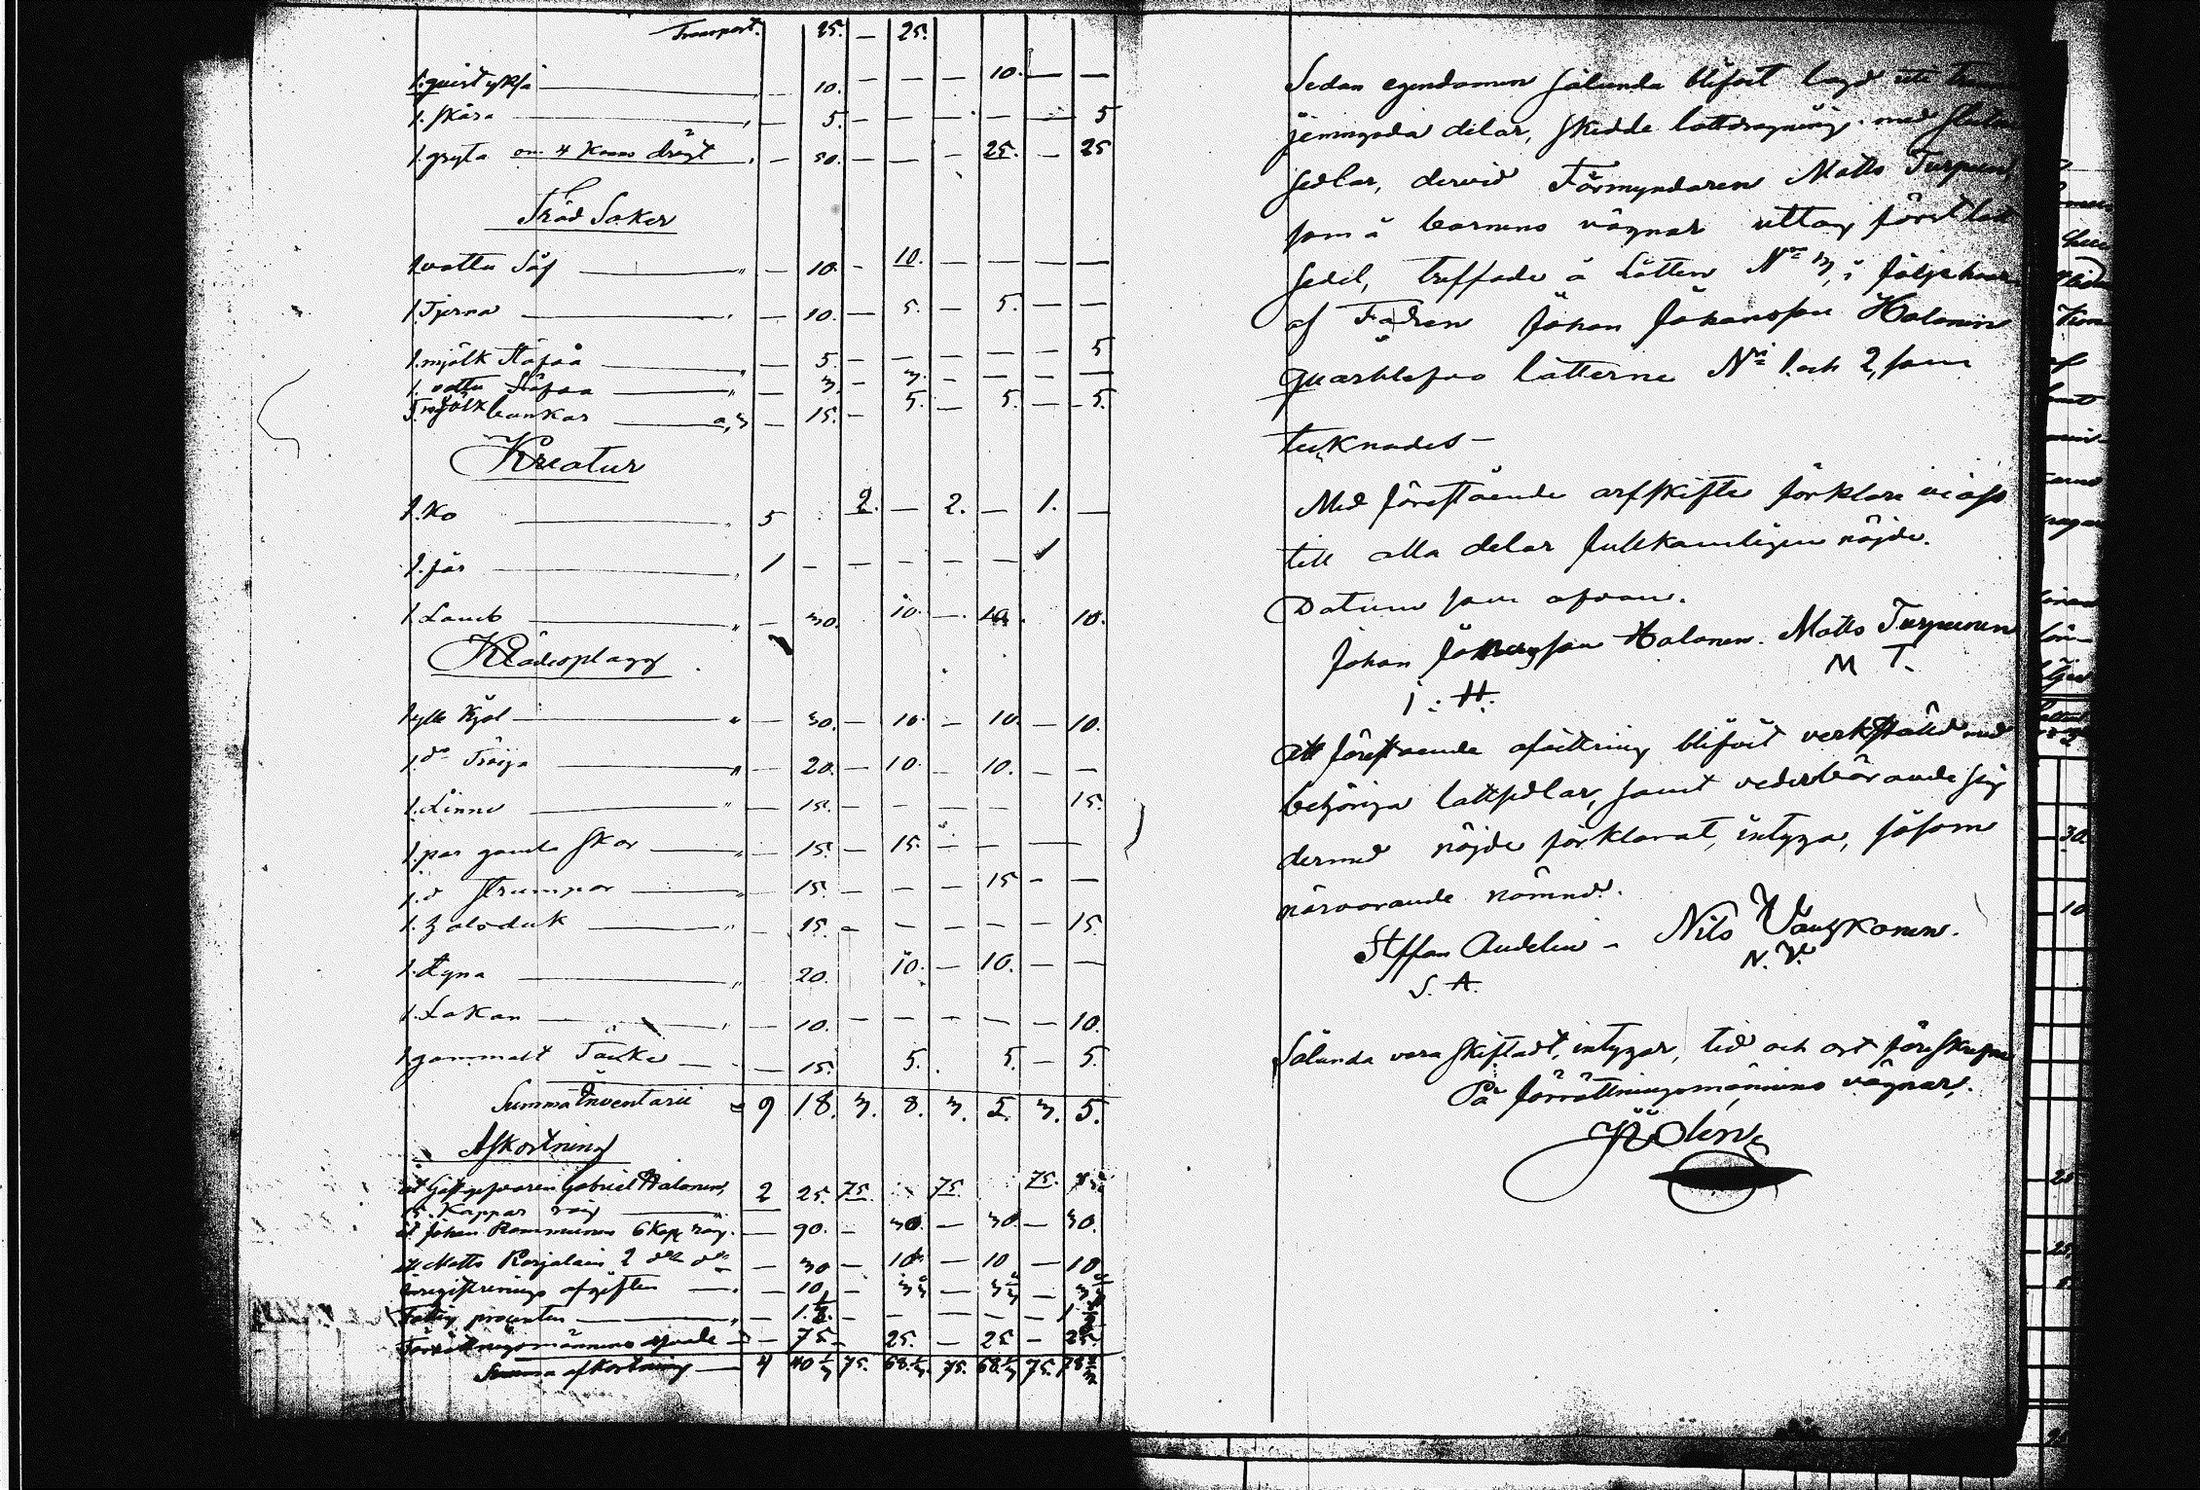 Transport. 25. — 25.
1. quist yxa — 10. — — — 10. — —
1. skära — 5. — — — — — 5
1. gryta om 4 Kanns drägt — 50. — — — 25. — 25
Träd Saker
1 vattu Såf — 10. — 10. — — — —
1. Tjerna — 10. — 5. — 5. — —
1. mjölk Stäfva — 5. — — — — — 5
1. vattu Stäfva — 3. — 3. — — — —
5. mjölk bunkar a, 3 — 15. — 5. — 5. — 5.
Kreatur
1. Ko 5 2. — 2. — 1. —
1. får 1 — — — — — 1
1. Lamb — 30. 10. — 10. 10.
Klädesplagg
1 ylle Kjol — 30. — 10. — 10. — 10.
1. do Tröija — 20. — 10. — 10. — —
1. Linne — 15. — — — — 15.
1. par gamla skor — 15. — 15. — — —
1. d strumpor — 15. — — — 15 — —
1. halsduk — 15. — — — — — 15.
1. Dyna 20. 10. — 10. — —
1. Lakan — 10. — — — — — 10.
1 gammalt Täcke — 15. 5. 5. — 5.
Summa Inventarii 9 18. 3. 8. 3. 5. 3. 5.
Afkortning
åt Gabriel Halonen, 2 25. 75. 75. 75.
15. Kappar råg
åt Johan 6 Kap. råg. — 90. — 30. — 30. — 30.
åt Matts 2 do do — 30 — 10. — 10 — 10
Inregistrerings afgiften — 10. — 3 1/3 — 3 1/3 — 3 1/3
Fattig procenten — 1. — — — — 1
Förrättningsmännens arfvode — 75 — 25. — 25 — 25.
Summa afkortning 4 40 1/3 75. 68 1/3 75. 68 1/3 75.
Sedan egendomen sålunda blifvit lagd uti
jemngoda delar, skedde lottdragning med slutna
sedlar, dervid Förmyndaren Matts Turpeinen
som å barnens vägnar uttog först lott
sedel, träffade å Lotten No 3, i följe hvar
af Fadren Johan Johansson Halonen
qvarblefvo lotterne No 1. och 2, som
tecknades —
Med förestående arfskifte förklare vi oss
till alla delar fullkomligen nöjde.
Datum som ofvan.
Johan Johansson Halonen. Matts Turpeinen
I: H: M T.
Att förestående afvittring blifvit verkställd med
behöriga lottsedlar, samt vederbörande sig
dermed nöjde förklarat, intyga, såsom
närvarande nämnd.
Steffan Audelin — Nils Vauhkonen.
S. A. N. V.
Sålunda vara skiftadt, intygar, tid och ort föreskrefne
På förrättningsmännens vägnar,